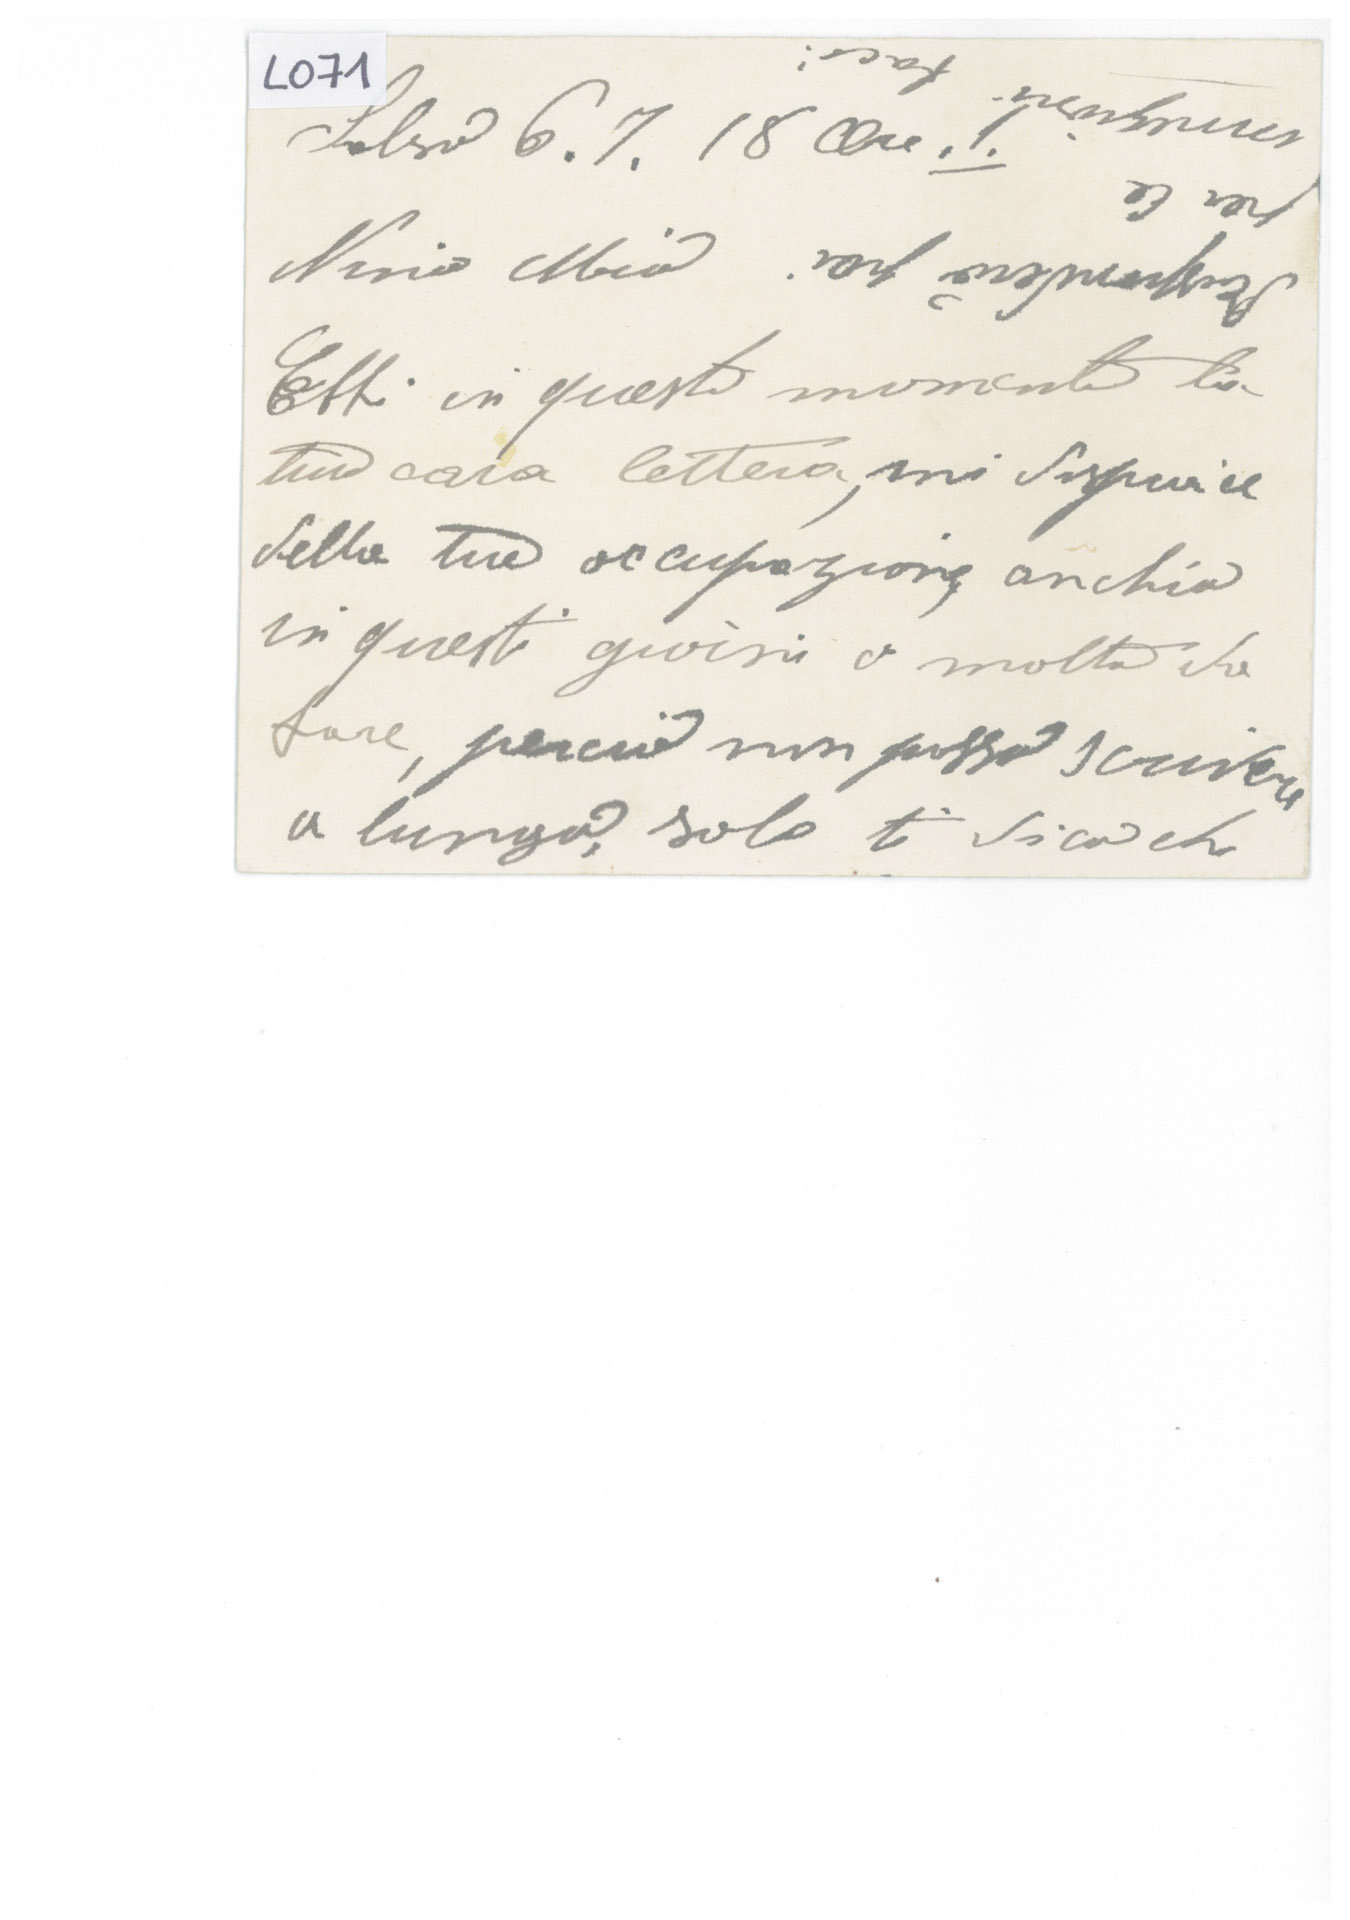 L071
Salso 6.7.18 Ore 11.
Nina Mia
Ebbi in questo momento la
tua cara lettera, mi dispiace
della tua occupazione, anchio
in questi giorni o molto da
fare, perciò non posso scrivere
a lungo, solo ti dico che
Risponderò poi
per le